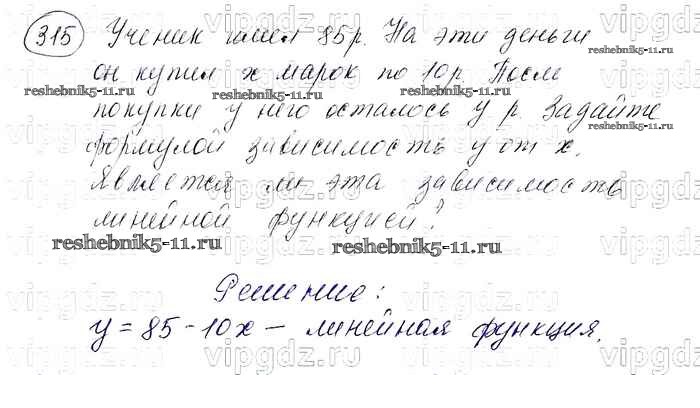 315 Ученик имел 85 р. На эти деньги
он купил x марок по 10 р. После
покупки у него осталось y р. Задайте
формулой зависимость y от x.
Является ли эта зависимость
линейной функцией?
reshebnik5-11.ru
Решение:
y = 85 - 10x — линейная функция.